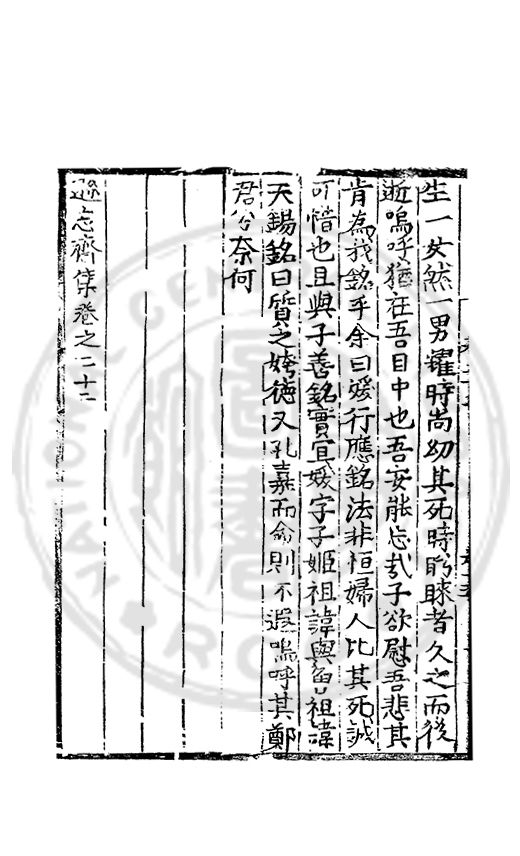 生一女然一男耀時尚幼其死時眄睞者久之而後
逝嗚呼猶在吾目中也吾安能忘哉子欲慰吾悲其
肯為我銘乎余曰媛行應銘法非恒婦人比其死誠
可惜也且與子善銘實宜媛字子姬祖諱與魯祖諱
天錫銘曰質之姱德又孔嘉而命則不遐嗚呼其鄭
君兮奈何
遜志齋集卷之二十二